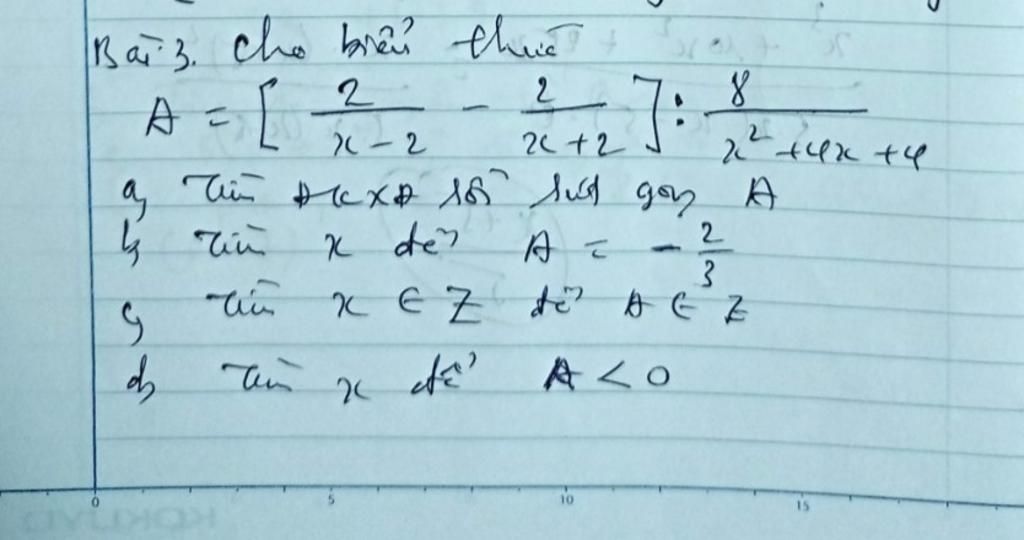 Bài 3. Cho biểu thức
A = [ 2/(x-2) - 2/(x+2) ] : 8/(x²+4x+4)
a, Tìm ĐKXĐ rồi rút gọn A
b, Tìm x để A = -2/3
c, Tìm x ∈ Z để A ∈ Z
d, Tìm x để A < 0
0 5 10 15